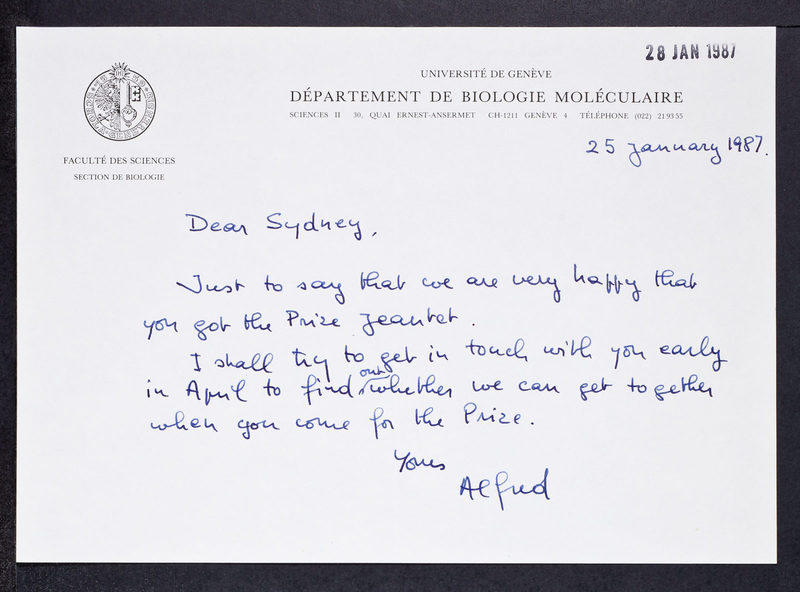 28 JAN 1987
UNIVERSITÉ DE GENÈVE
DÉPARTEMENT DE BIOLOGIE MOLÉCULAIRE
SCIENCES II 30, QUAI ERNEST-ANSERMET CH-1211 GENÈVE 4 TÉLÉPHONE (022) 21 93 55
25 January 1987.
FACULTÉ DES SCIENCES
SECTION DE BIOLOGIE
Dear Sydney,
Just to say that we are very happy that
you got the Prize Jeantet.
I shall try to get in touch with you early
in April to find out whether we can get together
when you come for the Prize.
Yours
Alfred